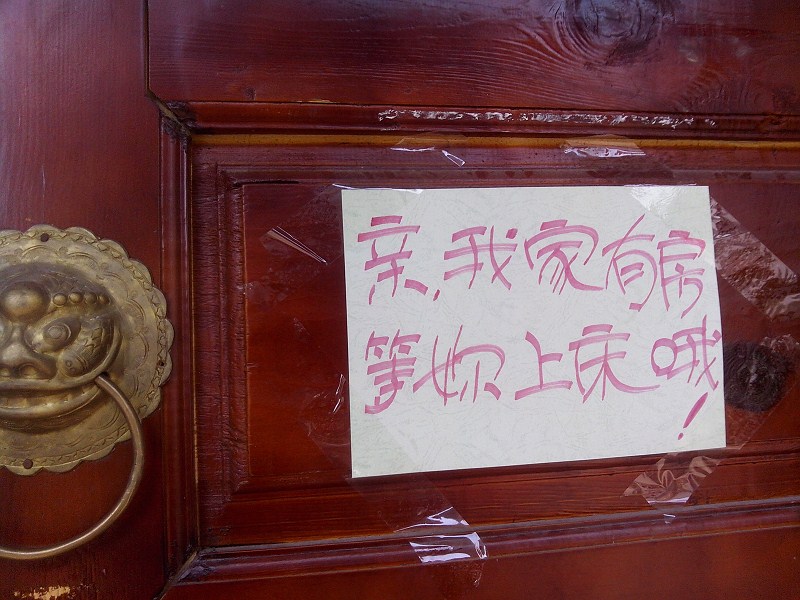 亲，我家有房
等妳上床哦！